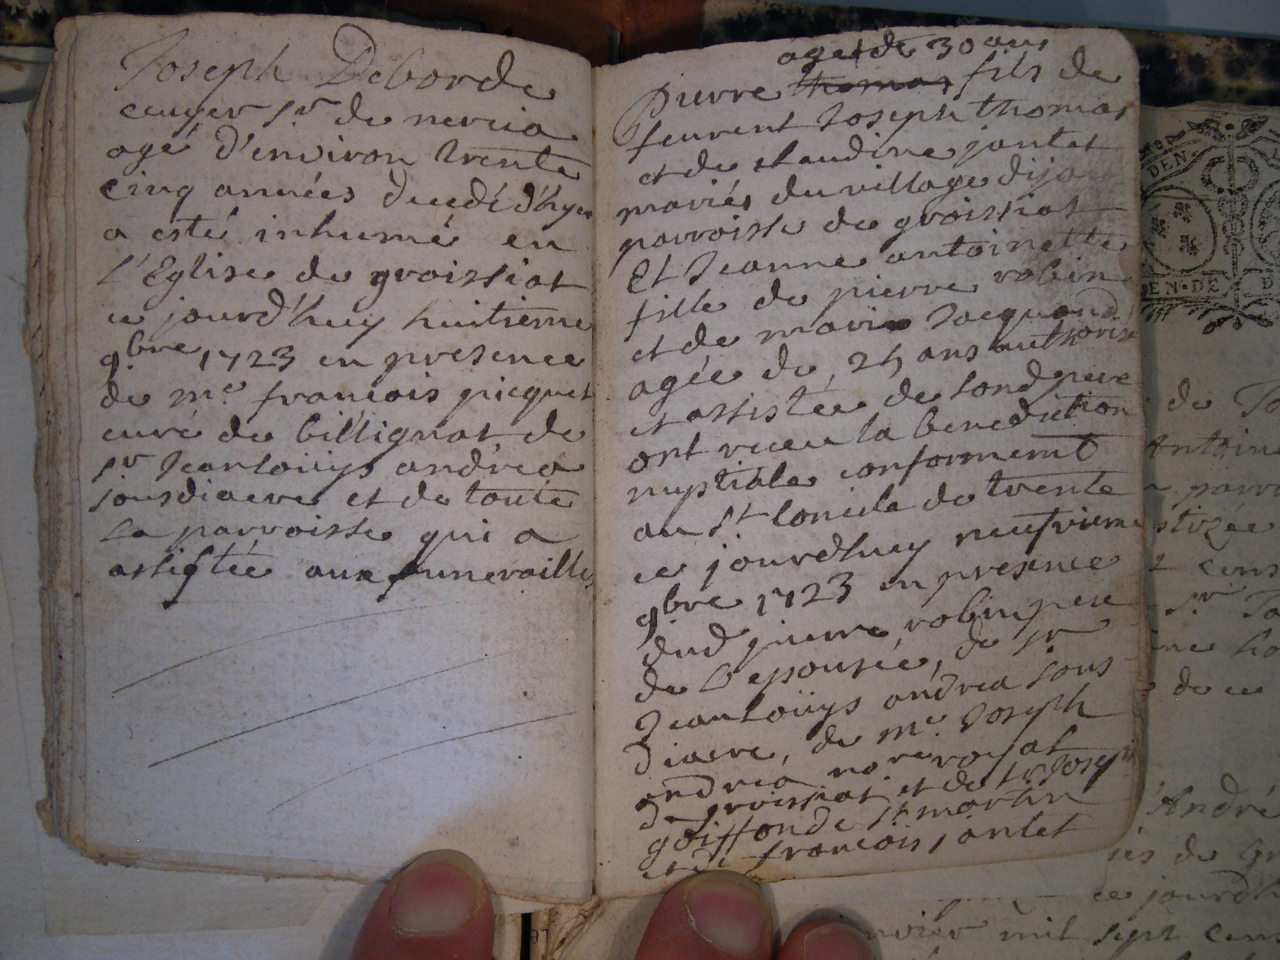 Joseph Deborde
ecuyer sr de nercia
agé d'environ trente
cinq années decedé d'hyer
a esté inhumé en
l'Eglise de groissiat
ce jourd'huy huitieme
9bre 1723 en presence
de me françois picquet
curé de billignat, de
sr Jean loüys andrea
sousdiacre et de toute
la parroisse qui a
assistée aux funerailles
agé de 30 ans
Pierre thomas fils de
feurent Joseph thomas
et de claudine jantet
mariés du village dijon
parroisse de groissiat
Et Jeanne antoinette
fille de pierre robin
et de marie Jacquand
agée de 25 ans authorisé
et assistée de sond pere
ont receu la benediction
nuptiale conformemt
au st concile de trente
ce jourdhuy neufvieme
9bre 1723 en presence
dud pierre robin pere
de l'epousée, de sr
Jean loüys andrea sous
diacre, de me Joseph
andrea nore royal
de groissiat et de sr Joseph
goiffon de st martin
et de françois jantet
DEN
DEN·DE
de
Antoine
parr
André
de
ce jourdh
mil sept cens